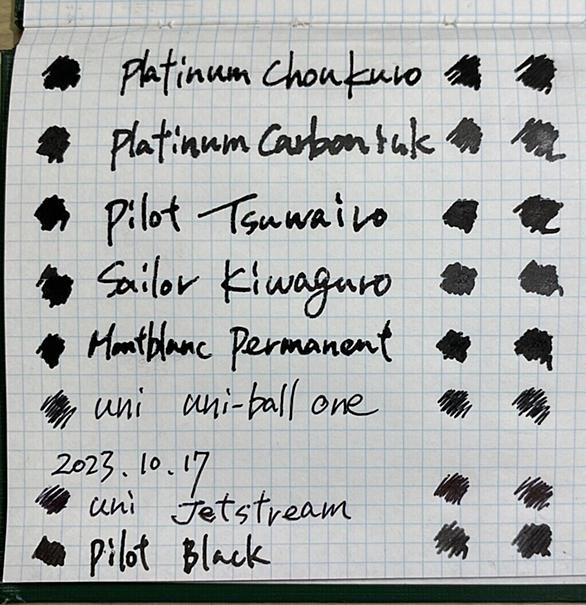 Platinum Choukuro
Platinum Carbon Ink
Pilot Tsuwairo
Sailor Kiwaguro
Montblanc Permanent
uni uni-ball one
2023.10.17
uni Jetstream
Pilot Black